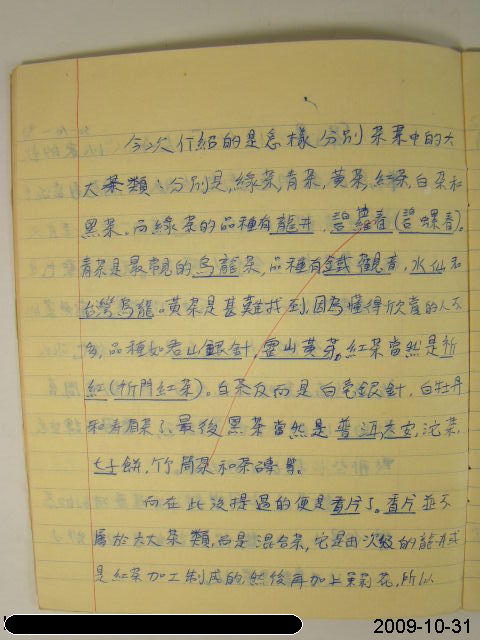 今次介紹的是怎樣分別茶葉中的六
大茶類：分別是，綠茶，青茶，黃茶，紅茶，白茶和
黑茶。而綠茶的品種有龍井，碧蘿春（碧螺春）。
青茶是最常見的烏龍茶，品種有鐵觀音，水仙和
台灣烏龍。黃茶是甚難找到，因為懂得欣賞的人不
多，品種如君山銀針，霍山黃芽。紅茶當然是祈
紅（祈門紅茶）。白茶反而是白毫銀針，白牡丹
和壽眉茶了。最後黑茶當然是普洱，沱茶，
七子餅，竹筒茶和茶磚等。
而在此後提過的便是香片了。香片並不
屬於六大茶類，而是混合茶，它是由次級的龍井或
是紅茶加工制成的，然後再加上茉莉花，所以
2009-10-31